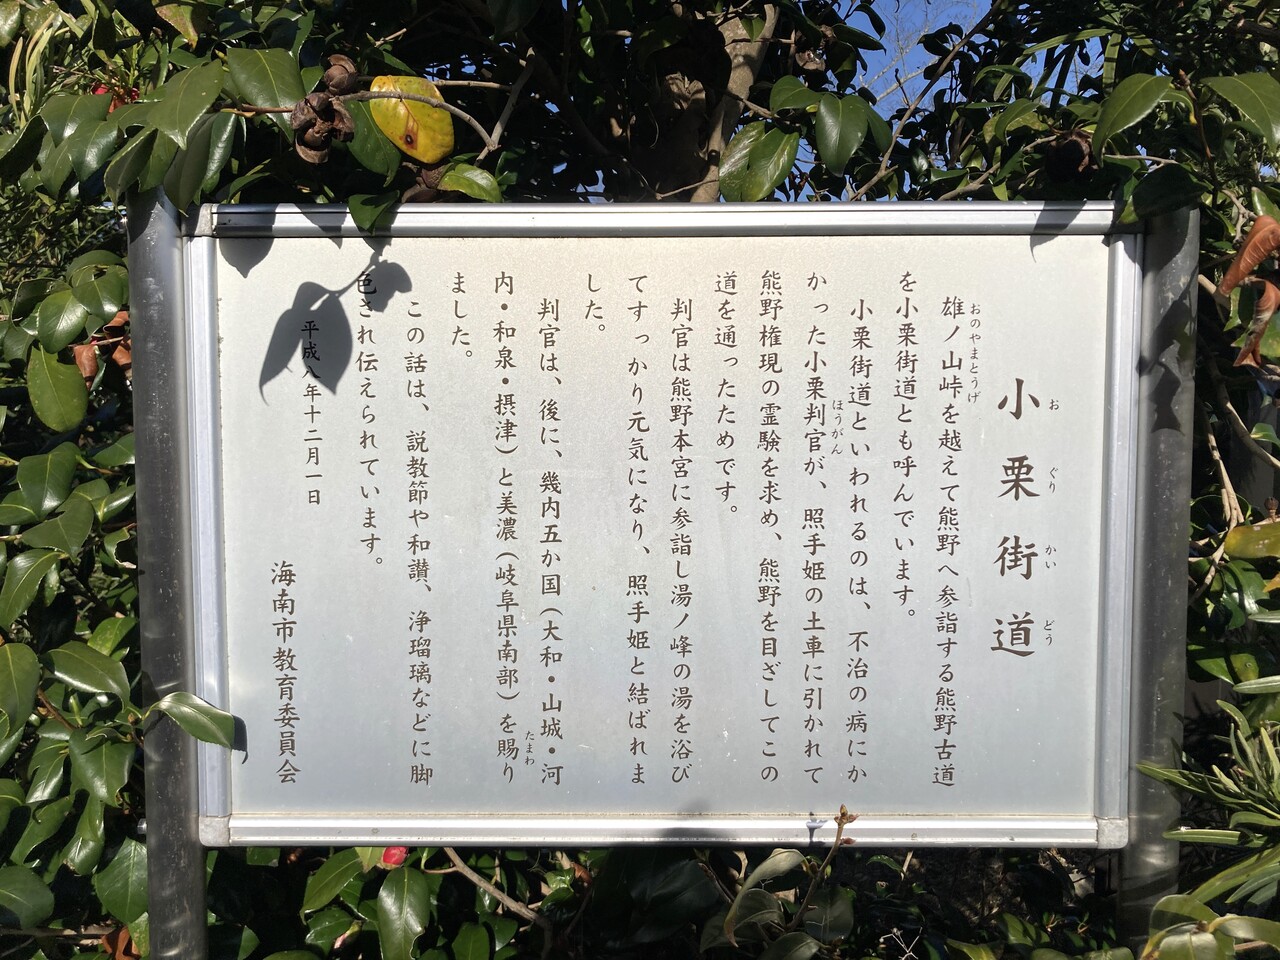 小栗街道
おぐりかいどう
おのやまとうげ
雄ノ山峠を越えて熊野へ参詣する熊野古道
を小栗街道とも呼んでいます。
小栗街道といわれるのは、不治の病にか
ほうがん
かった小栗判官が、照手姫の土車に引かれて
熊野権現の霊験を求め、熊野を目ざしてこの
道を通ったためです。
判官は熊野本宮に参詣し湯ノ峰の湯を浴び
てすっかり元気になり、照手姫と結ばれま
した。
判官は、後に、幾内五か国(大和・山城・河
たまわ
内・和泉・摂津)と美濃(岐阜県南部)を賜り
ました。
この話は、説教節や和讃、浄瑠璃などに脚
色され伝えられています。
平成八年十二月一日
海南市教育委員会